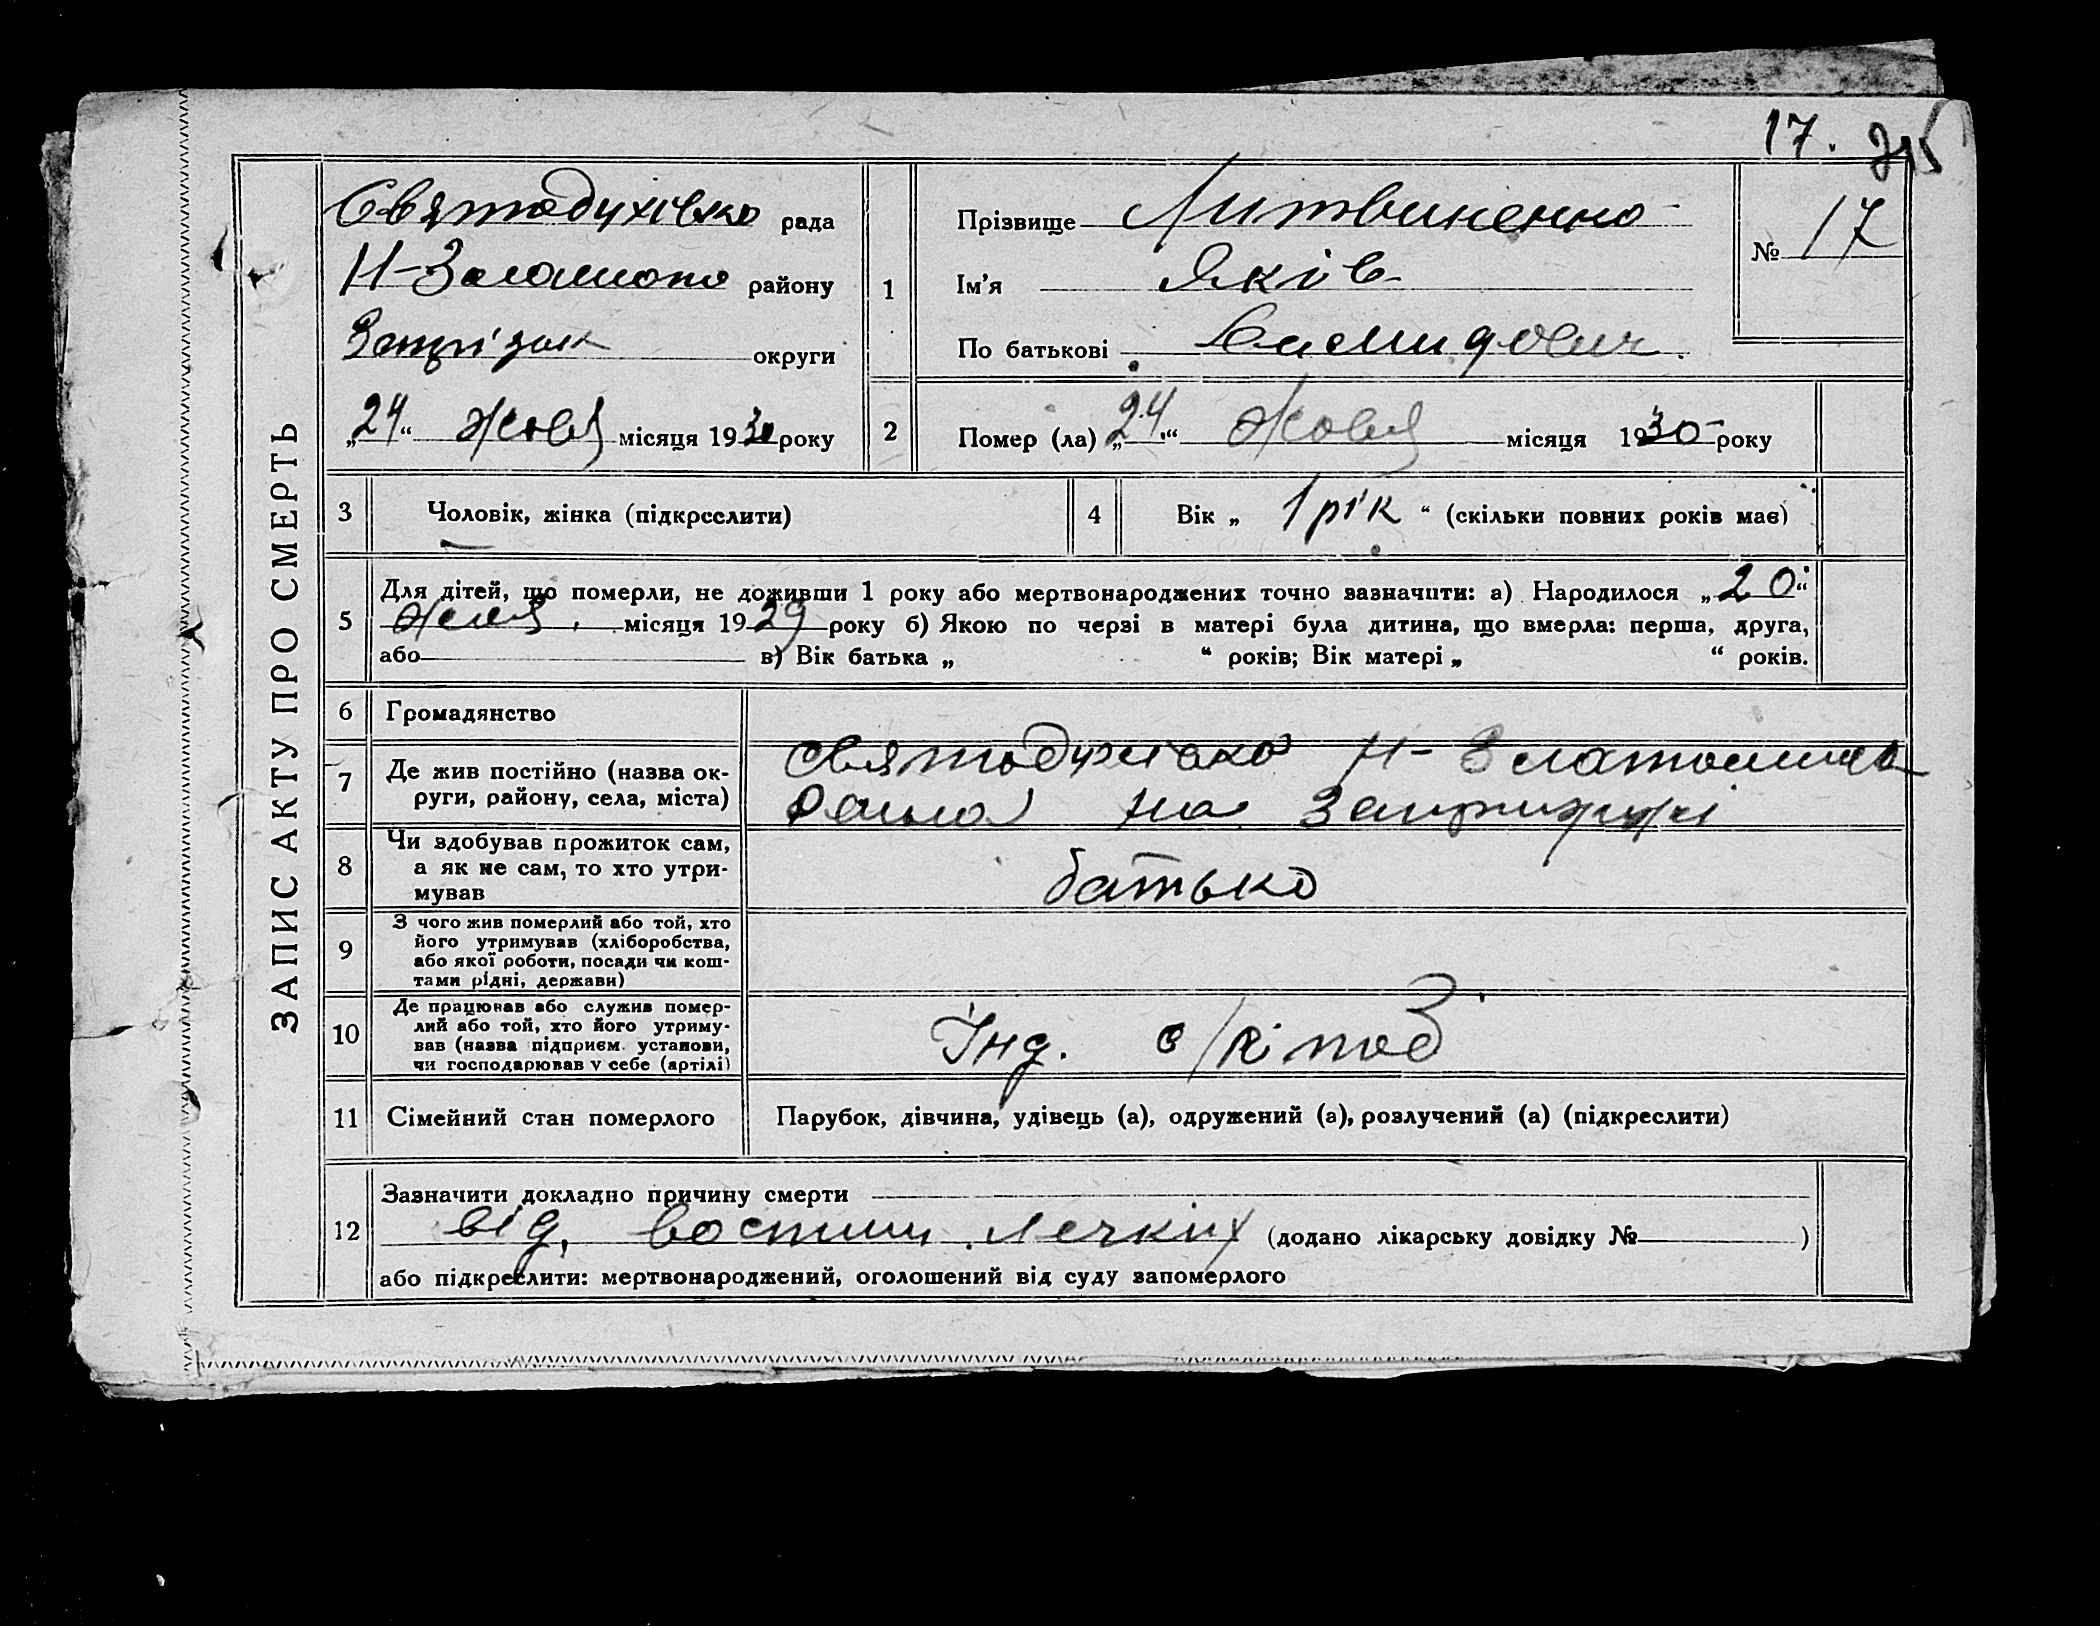 17. 215
ЗАПИС АКТУ ПРО СМЕРТЬ
Святодухівко рада
Н-Золатопо району
Запріжж округи
„24“ Жовт місяця 1930 року
1
Прізвище Литвиненко
Ім'я Яків
По батькові
№ 17
2
Помер (ла) „24“ Жовт місяця 1930 року
3
Чоловік, жінка (підкреслити)
4
Вік „ 1 рік “ (скільки повних років має)
5
Для дітей, що померли, не доживши 1 року або мертвонароджених точно зазначити: а) Народилося „20“
місяця 1929 року б) Якою по черзі в матері була дитина, що вмерла: перша, друга,
або в) Вік батька „ “ років; Вік матері „ “ років.
6
Громадянство
7
Де жив постійно (назва ок-
руги, району, села, міста)
Святодухівко Н-Златопиль
на Запрожужі
8
Чи здобував прожиток сам,
а як не сам, то хто утри-
мував
батько
9
З чого жив померлий або той, хто
його утримував (хліборобства,
або якої роботи, посади чи кош-
тами рідні, держави)
10
Де працював або служив помер-
лий або той, хто його утриму-
вав (назва підприєм. установи,
чи господарював у себе (артілі)
Інд. с/г
11
Сімейний стан померлого
Парубок, дівчина, удівець (а), одружений (а), розлучений (а) (підкреслити)
12
Зазначити докладно причину смерти
від, воспиш легких (додано лікарську довідку № )
або підкреслити: мертвонароджений, оголошений від суду запомерлого